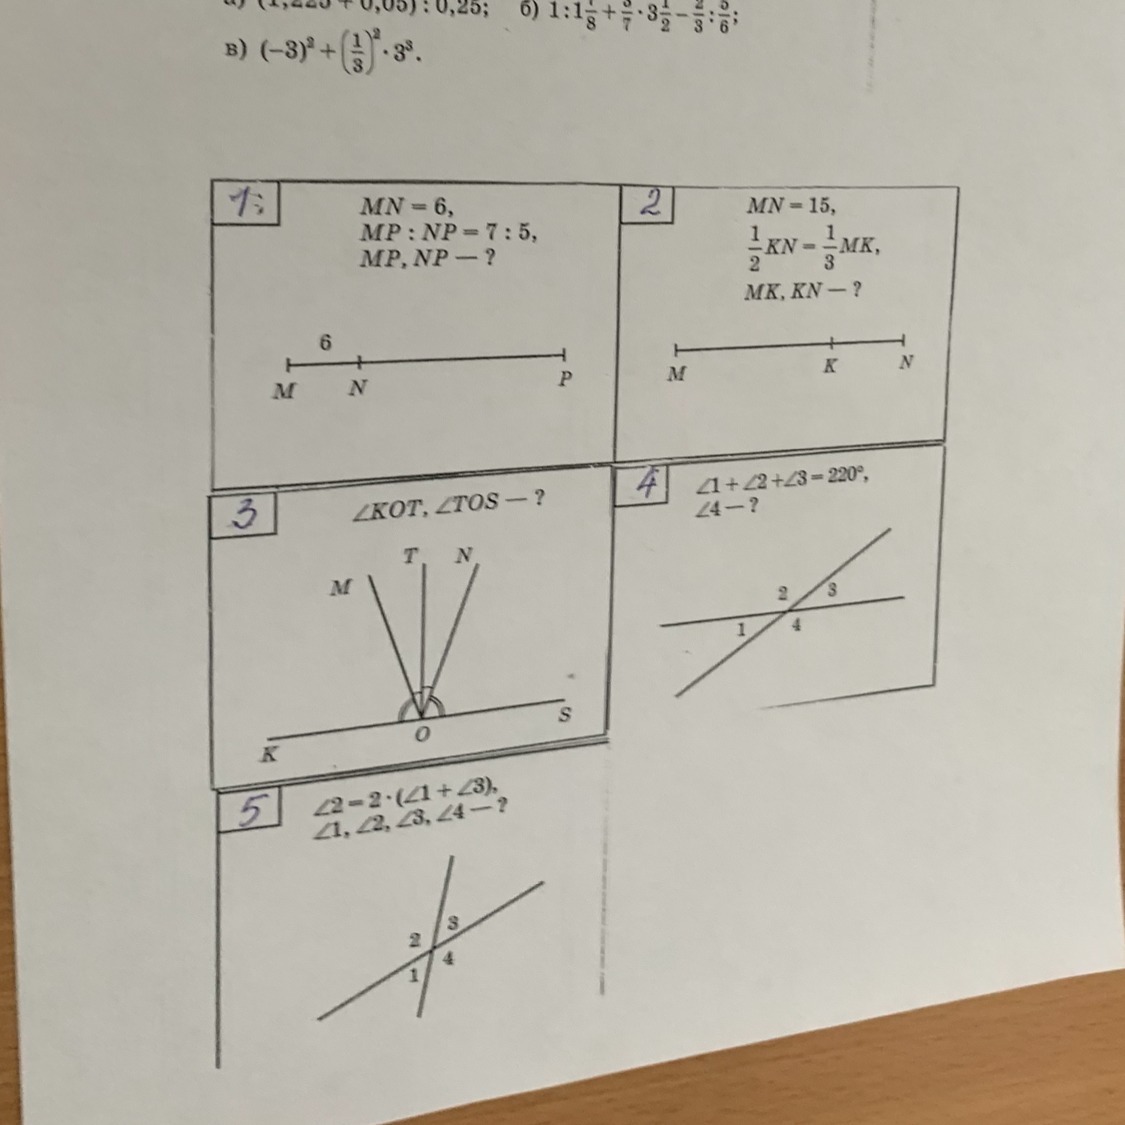 а) (1,225 + 0,05) : 0,25; б) 1 : 1 1/8 + 3/7 · 3 1/2 − 2/3 : 5/6;
в) (−3)² + (1/3)² · 3³.
1;
MN = 6,
MP : NP = 7 : 5,
MP, NP — ?
6
M N P
2
MN = 15,
1/2 KN = 1/3 MK,
MK, KN — ?
M K N
3
∠KOT, ∠TOS — ?
M T N
K O S
4
∠1 + ∠2 + ∠3 = 220°,
∠4 — ?
2 3
1 4
5
∠2 = 2 · (∠1 + ∠3),
∠1, ∠2, ∠3, ∠4 — ?
2 3
1 4